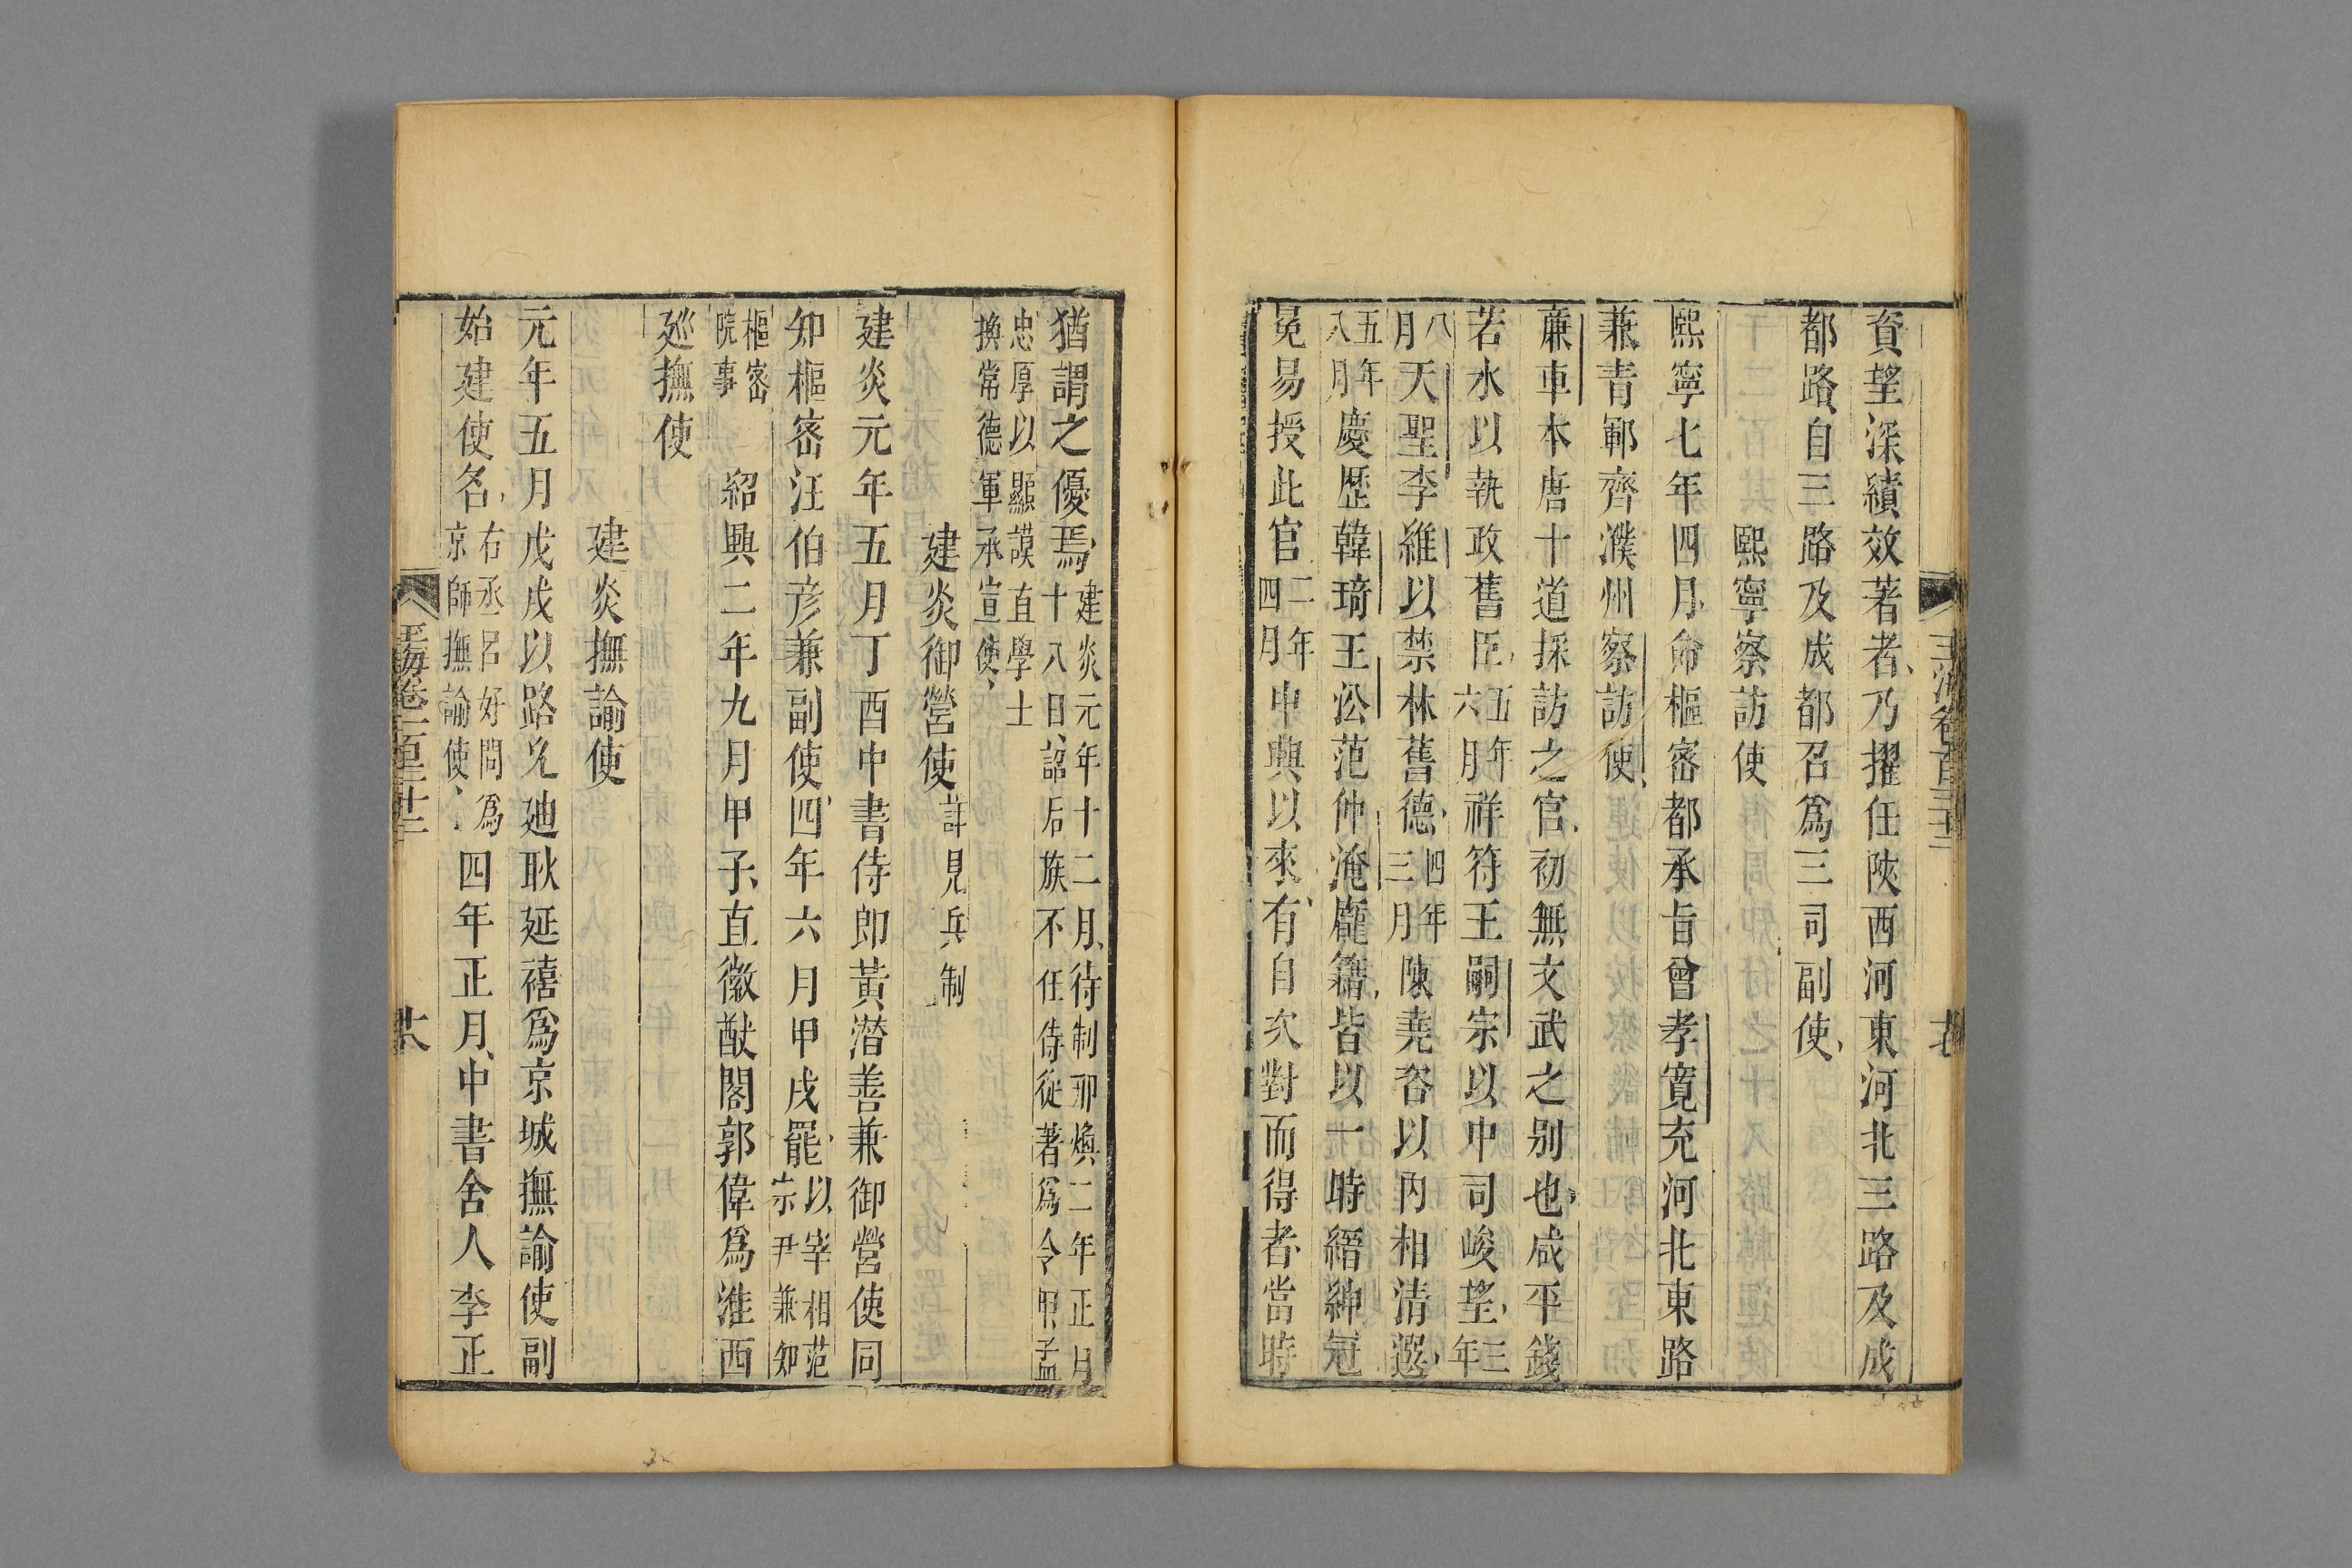 資望深績效著者乃擢任陜西河東河北三路及成
都路自三路及成都召爲三司副使
熙寧察訪使
熙寧七年四月命樞密都承旨曾孝寬充河北東路
兼青鄆齊濮州察訪使
廉車本唐十道採訪之官初無文武之别也咸平錢
若水以執政舊臣五年六月祥符王嗣宗以中司峻望三年
八月天聖李維以禁林舊德四年三月陳堯咨以内相清選
五年八月慶歷韓琦王㳂范仲淹龐籍皆以一時縉紳冠
冕易授此官二年四月中興以來有自次對而得者當時
猶謂之優焉建炎元年十二月待制邢煥二年正月十八日詔后族不任侍從著爲令甲孟
忠厚以顯謨直學士換常德軍承宣使
建炎御營使詳見兵制
建炎元年五月丁酉中書侍郎黃潛善兼御營使同
知樞密汪伯彦兼副使四年六月甲戌罷以宰相范宗尹兼知
樞密院事 紹興二年九月甲子直徽猷閣郭偉爲淮西
廵撫使
建炎撫諭使
元年五月戊戌以路允迪耿延禧爲京城撫諭使副
始建使名右丞呂好問爲京師撫諭使四年正月中書舍人李正
玉海卷一百三十二
十八